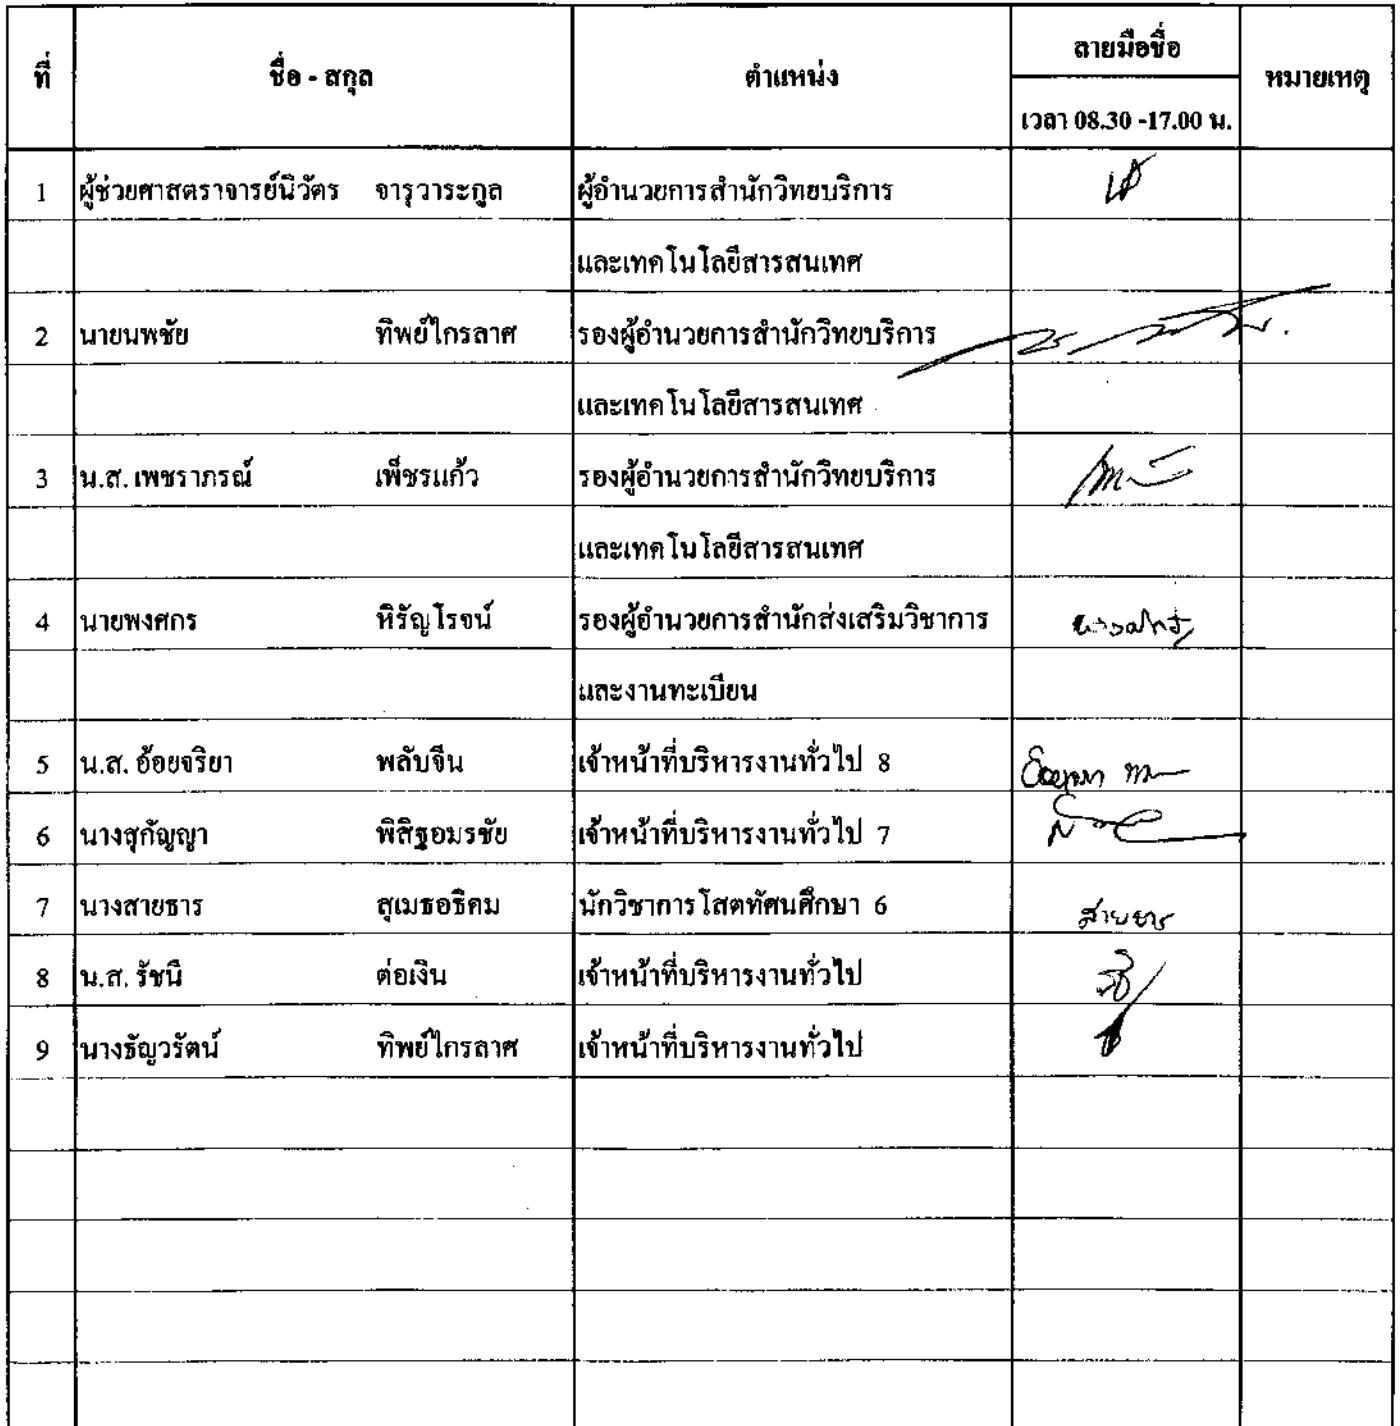 ที่ ชื่อ - สกุล ตำแหน่ง ลายมือชื่อ หมายเหตุ
เวลา 08.30 -17.00 น.
1 ผู้ช่วยศาสตราจารย์นิวัตร จารุวาระกูล ผู้อำนวยการสำนักวิทยบริการ
และเทคโนโลยีสารสนเทศ
2 นายนพชัย ทิพย์ไกรลาศ รองผู้อำนวยการสำนักวิทยบริการ
และเทคโนโลยีสารสนเทศ
3 น.ส. เพชราภรณ์ เพ็ชรแก้ว รองผู้อำนวยการสำนักวิทยบริการ
และเทคโนโลยีสารสนเทศ
4 นายพงศกร หิรัญโรจน์ รองผู้อำนวยการสำนักส่งเสริมวิชาการ
และงานทะเบียน
5 น.ส. อ้อยจริยา พลับจีน เจ้าหน้าที่บริหารงานทั่วไป 8
6 นางสุกัญญา พิสิฐอมรชัย เจ้าหน้าที่บริหารงานทั่วไป 7
7 นางสายธาร สุเมธอธิคม นักวิชาการโสตทัศนศึกษา 6 สายธาร
8 น.ส. รัชนี ต่อเงิน เจ้าหน้าที่บริหารงานทั่วไป
9 นางธัญวรัตน์ ทิพย์ไกรลาศ เจ้าหน้าที่บริหารงานทั่วไป